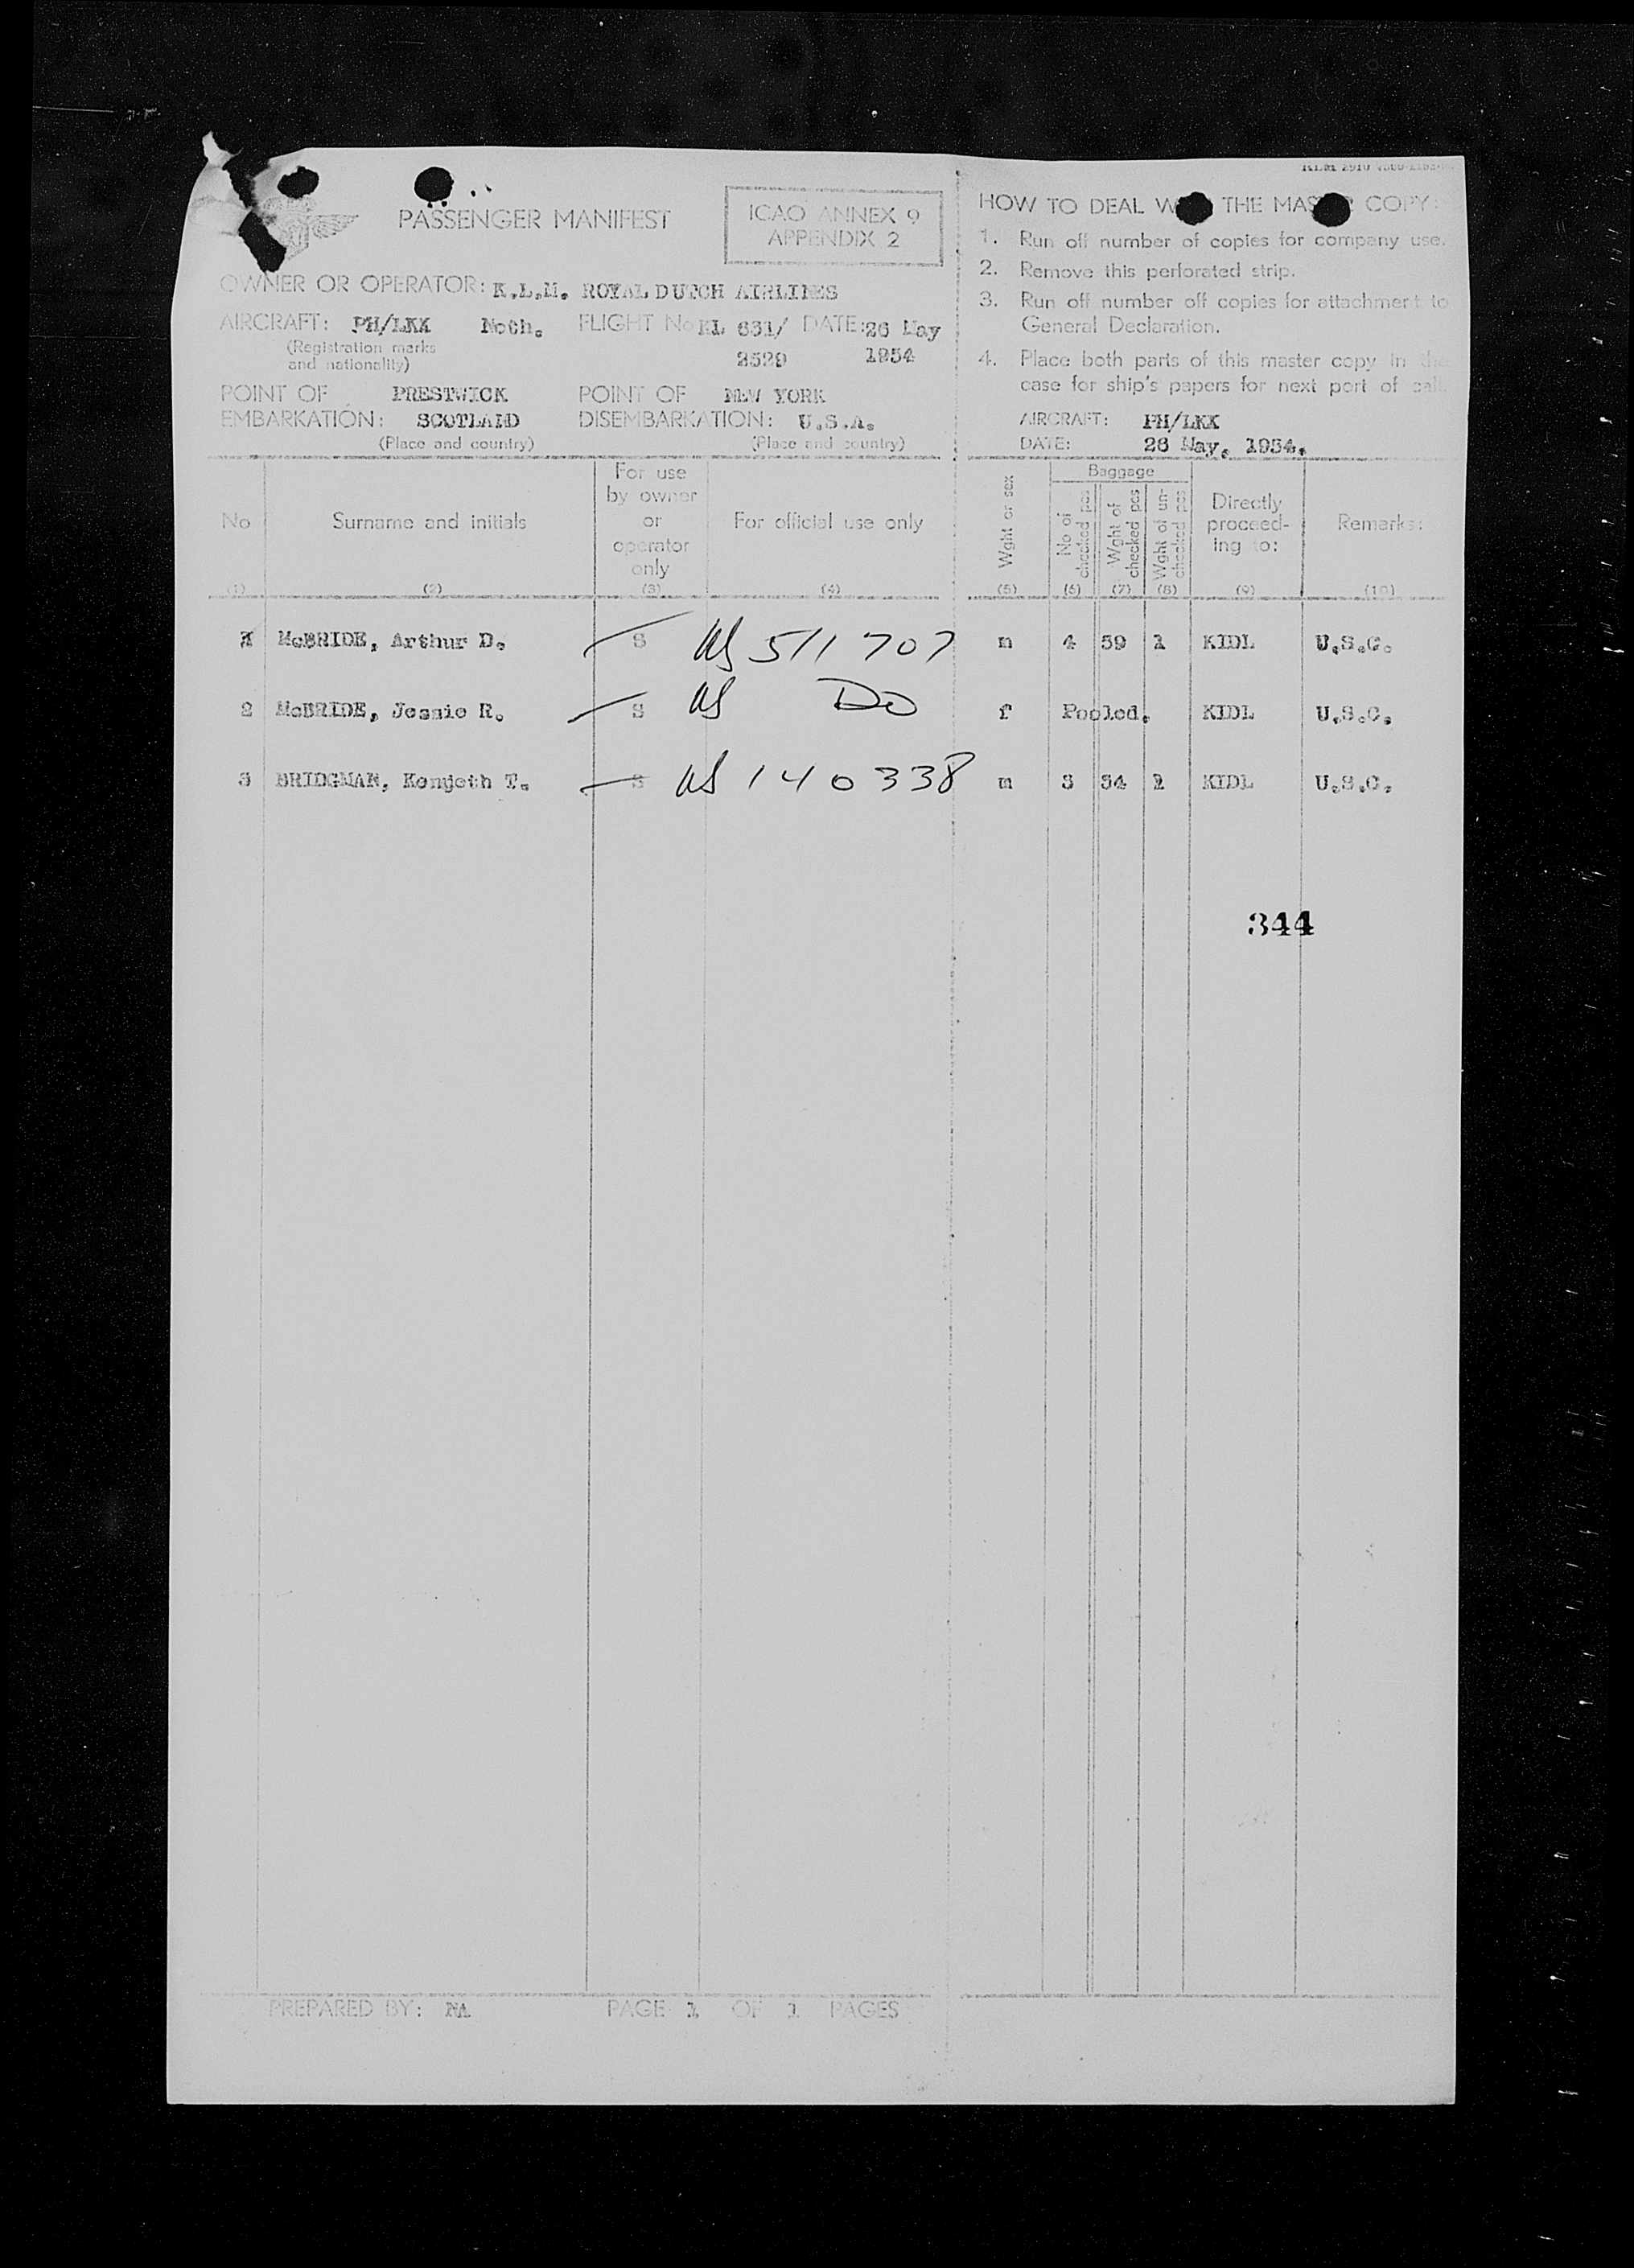 PASSENGER MANIFEST
ICAO ANNEX 9
APPENDIX 2
OWNER OR OPERATOR: K.L.M. ROYAL DUTCH AIRLINES
AIRCRAFT: PH/LKK Neth. FLIGHT No KL 631/ DATE: 26 May
(Registration marks
and nationality)
2529 1954
POINT OF PRESTWICK POINT OF NEW YORK
EMBARKATION: SCOTLAND DISEMBARKATION: U.S.A.
(Place and country) (Place and country)
HOW TO DEAL THE COPY:
1. Run off number of copies for company use.
2. Remove this perforated strip.
3. Run off number off copies for attachment to
General Declaration.
4. Place both parts of this master copy in the
case for ship's papers for next port of call.
AIRCRAFT: PH/LKK
DATE: 26 May. 1954.
No
Surname and initials
For use
by owner
or
operator
only
For official use only
Wght or sex
Baggage
No of
checked pcs
Wght of
checked pcs
Wght of un-
checked pcs
Directly
proceed-
ing to:
Remarks:
(1) (2) (3) (4) (5) (6) (7) (8) (9) (10)
1 McBRIDE, Arthur D. S US 511707 m 4 59 1 KIDL U.S.C.
2 McBRIDE, Jessie R. S US DO f Pooled. KIDL U.S.C.
3 BRIDGMAN, Kenneth T. S US 140338 m 3 34 1 KIDL U.S.C.
344
PREPARED BY: PAGE 1 OF 1 PAGES